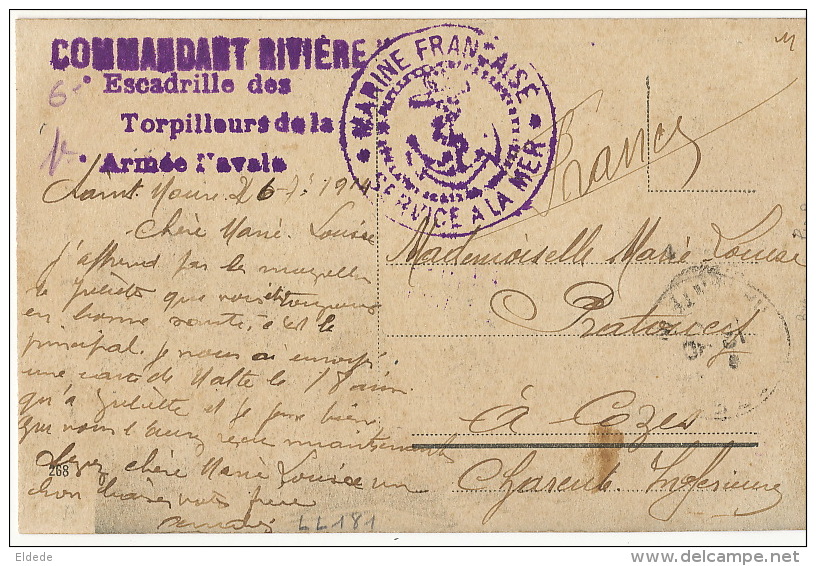 COMMANDANT RIVIÈRE
Escadrille des
Torpilleurs de la
Armée Navale
MARINE FRANÇAISE
SERVICE A LA MER
France
26 1914
Chère Marie Louise
j'apprend par les
que vous
en bonne santé, c'est le
principal. je vous ai envoyé
une carte de Malte le 18
qu'à Juliette et je bien
que vous l'aurez reçu maintenant
chère Marie Louise un
bon votre frère
Mademoiselle Marie Louise
à Cozes
Charente Inférieure
268
LL181
Eldede
delcampe.net